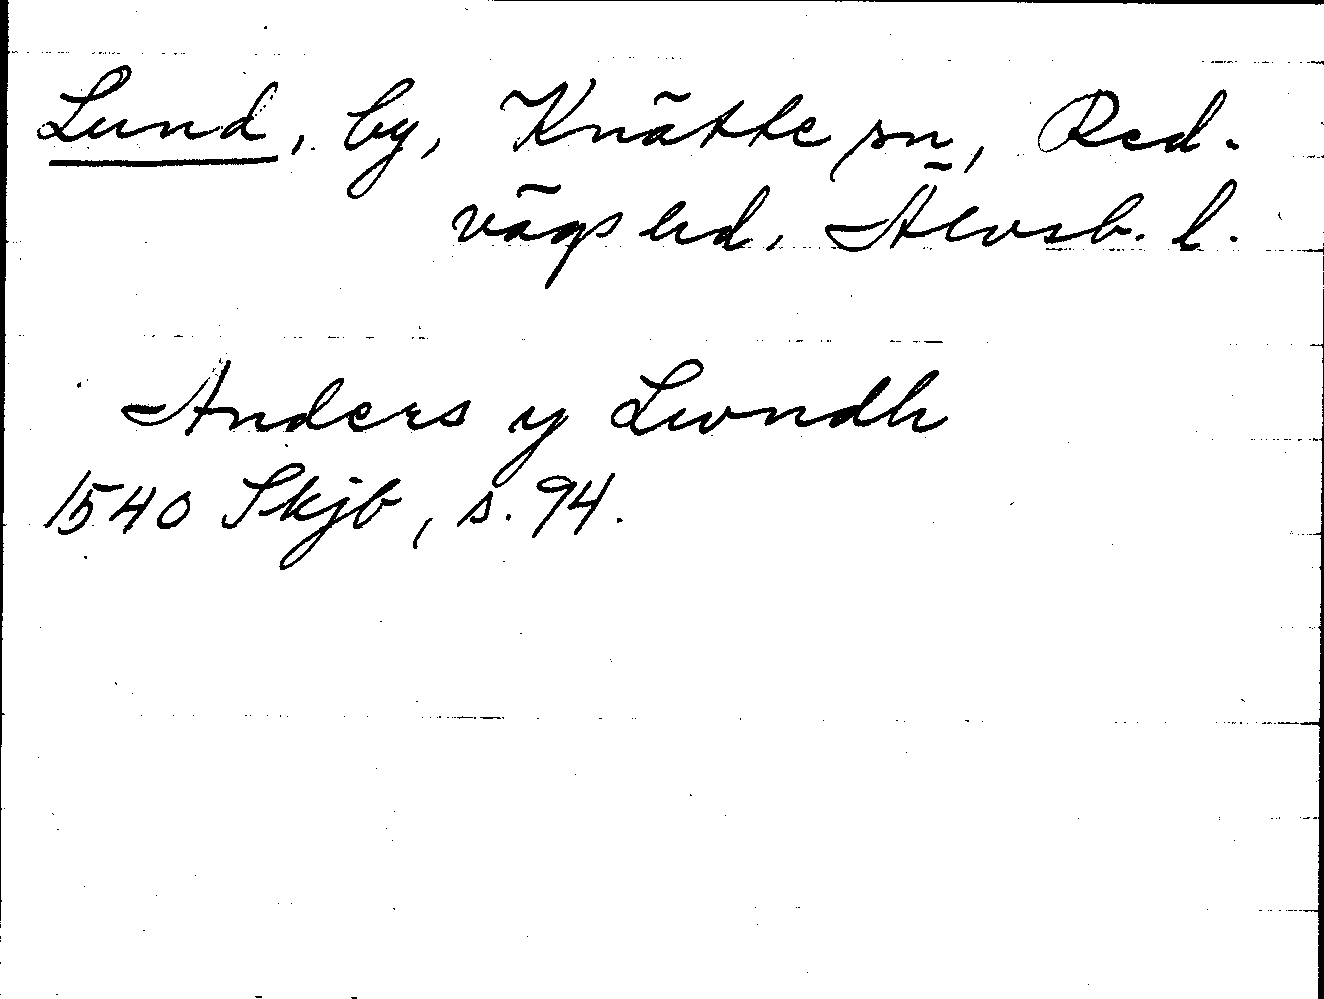 Lund, by, Knätte sn, Red-
vägs hd, Älvsb. l.
Anders y Lwndh
1540 Skjb, s. 94.